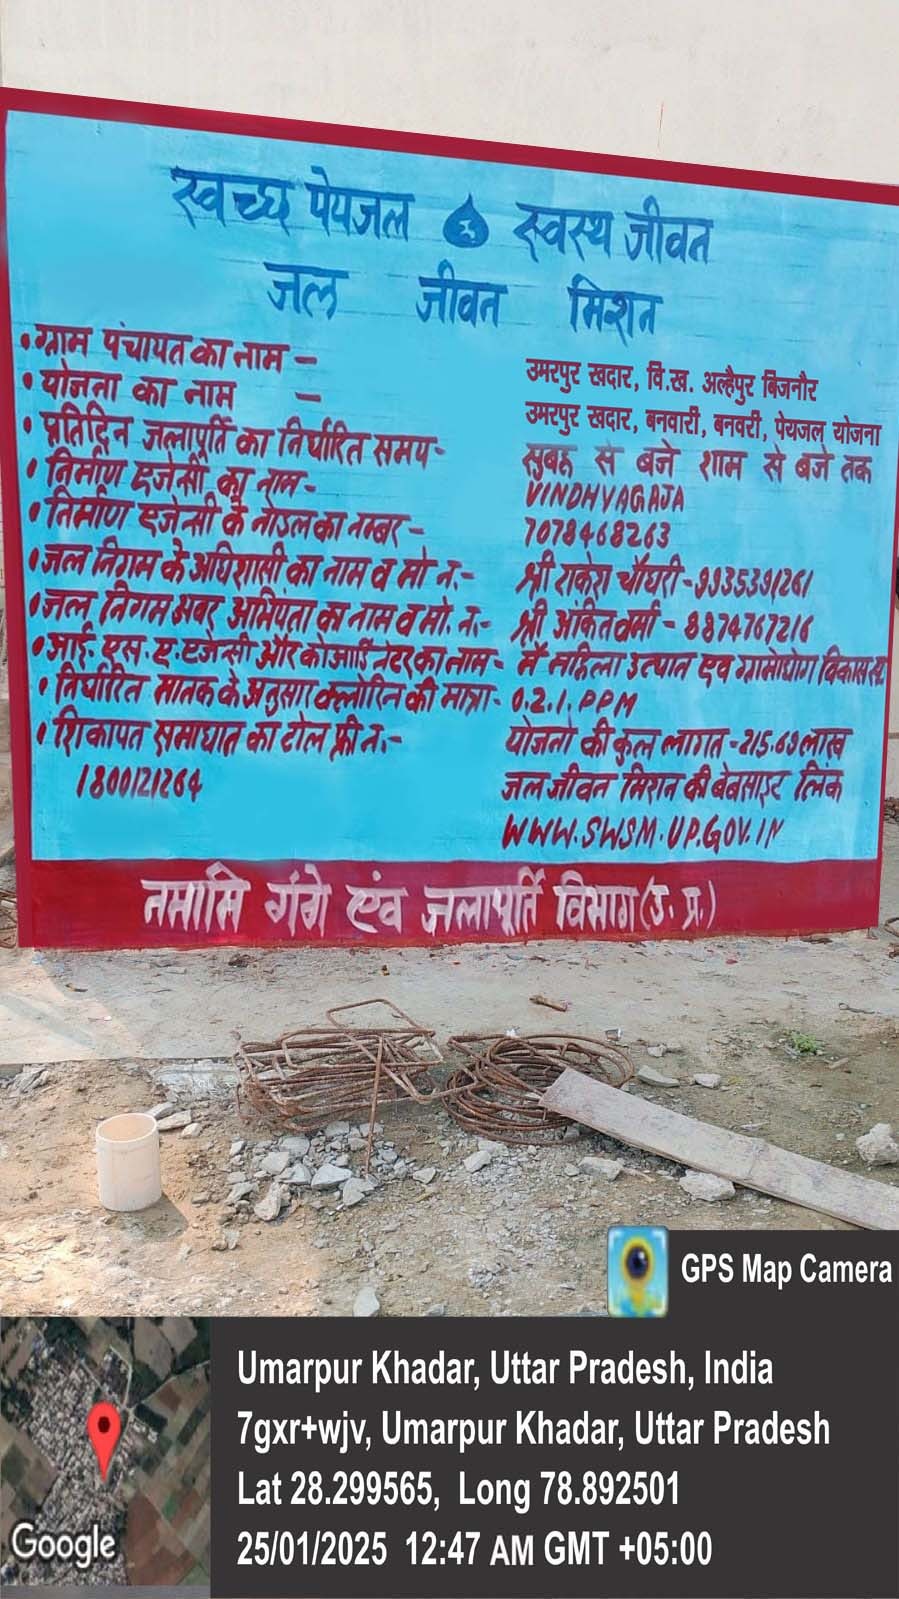 स्वच्छ पेयजल स्वस्थ जीवन
जल जीवन मिशन
• ग्राम पंचायत का नाम – उमरपुर खदार, वि.ख. अल्हैपुर बिजनौर
• योजना का नाम – उमरपुर खदार, बनवारी, बनवरी, पेयजल योजना
• प्रतिदिन जलापूर्ति का निर्धारित समय- सुबह से बजे शाम से बजे तक
• निर्माण एजेन्सी का नाम- VINDHYAGAJA
• निर्माण एजेन्सी के नोडल का नम्बर- 7078468263
• जल निगम के अधिशासी का नाम व मो न.- श्री राकेश चौधरी-9935391261
• जल निगम अवर अभियंता का नाम व मो. न.- श्री अंकित वर्मा - 8874767216
• आई. एस. ए. एजेन्सी और कोआर्डिनेटर का नाम- मै महिला उत्थान एवं ग्रामोद्योग विकास
• निर्धारित मानक के अनुसार क्लोरिन की मात्रा- 0.2.1.PPM
• शिकायत समाधान का टोल फ्री न.- योजना की कुल लागत-215.69 लाख
1800121264 जल जीवन मिशन की बेबसाइट लिंक
WWW.SWSM.UP.GOV.IN
नमामि गंगे एंव जलापूर्ति विभाग (उ. प्र.)
GPS Map Camera
Umarpur Khadar, Uttar Pradesh, India
7gxr+wjv, Umarpur Khadar, Uttar Pradesh
Lat 28.299565, Long 78.892501
25/01/2025 12:47 AM GMT +05:00
Google